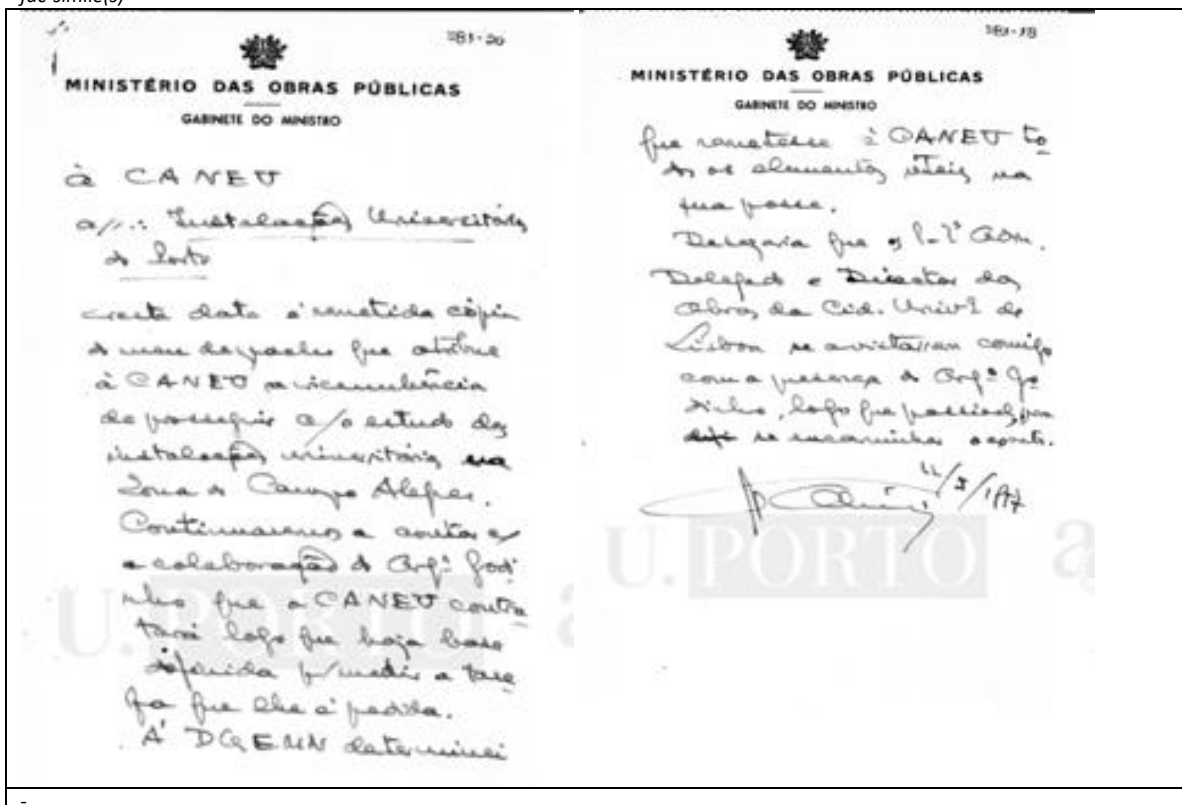 fac-símile(s)
381-20
MINISTÉRIO DAS OBRAS PÚBLICAS
GABINETE DO MINISTRO
à CANEU
a/.: Instalações Universitárias
do Porto
Nesta data é remetida cópia
do meu despacho que atribue
à CANEU a incumbência
de prosseguir c/o estudo das
instalações universitárias na
Zona do Campo Alegre.
Continuaremos a contar c/
a colaboração do Arqº. Godi
nho que a CANEU contra
tará logo que haja base
definida p/medir a tare
fa que lhe é pedida.
À DGEMN determinei
381-18
MINISTÉRIO DAS OBRAS PÚBLICAS
GABINETE DO MINISTRO
que remetesse à CANEU to
dos os elementos úteis na
sua posse.
Desejaria que o Adm.
Delegado e Director das
Obras da Cid. Univ. de
Lisboa se avistassem comigo
com a presença do Arqº Go
dinho, logo que possível, para
se encaminhar o assunto.
U.PORTO
U.PORTO
-